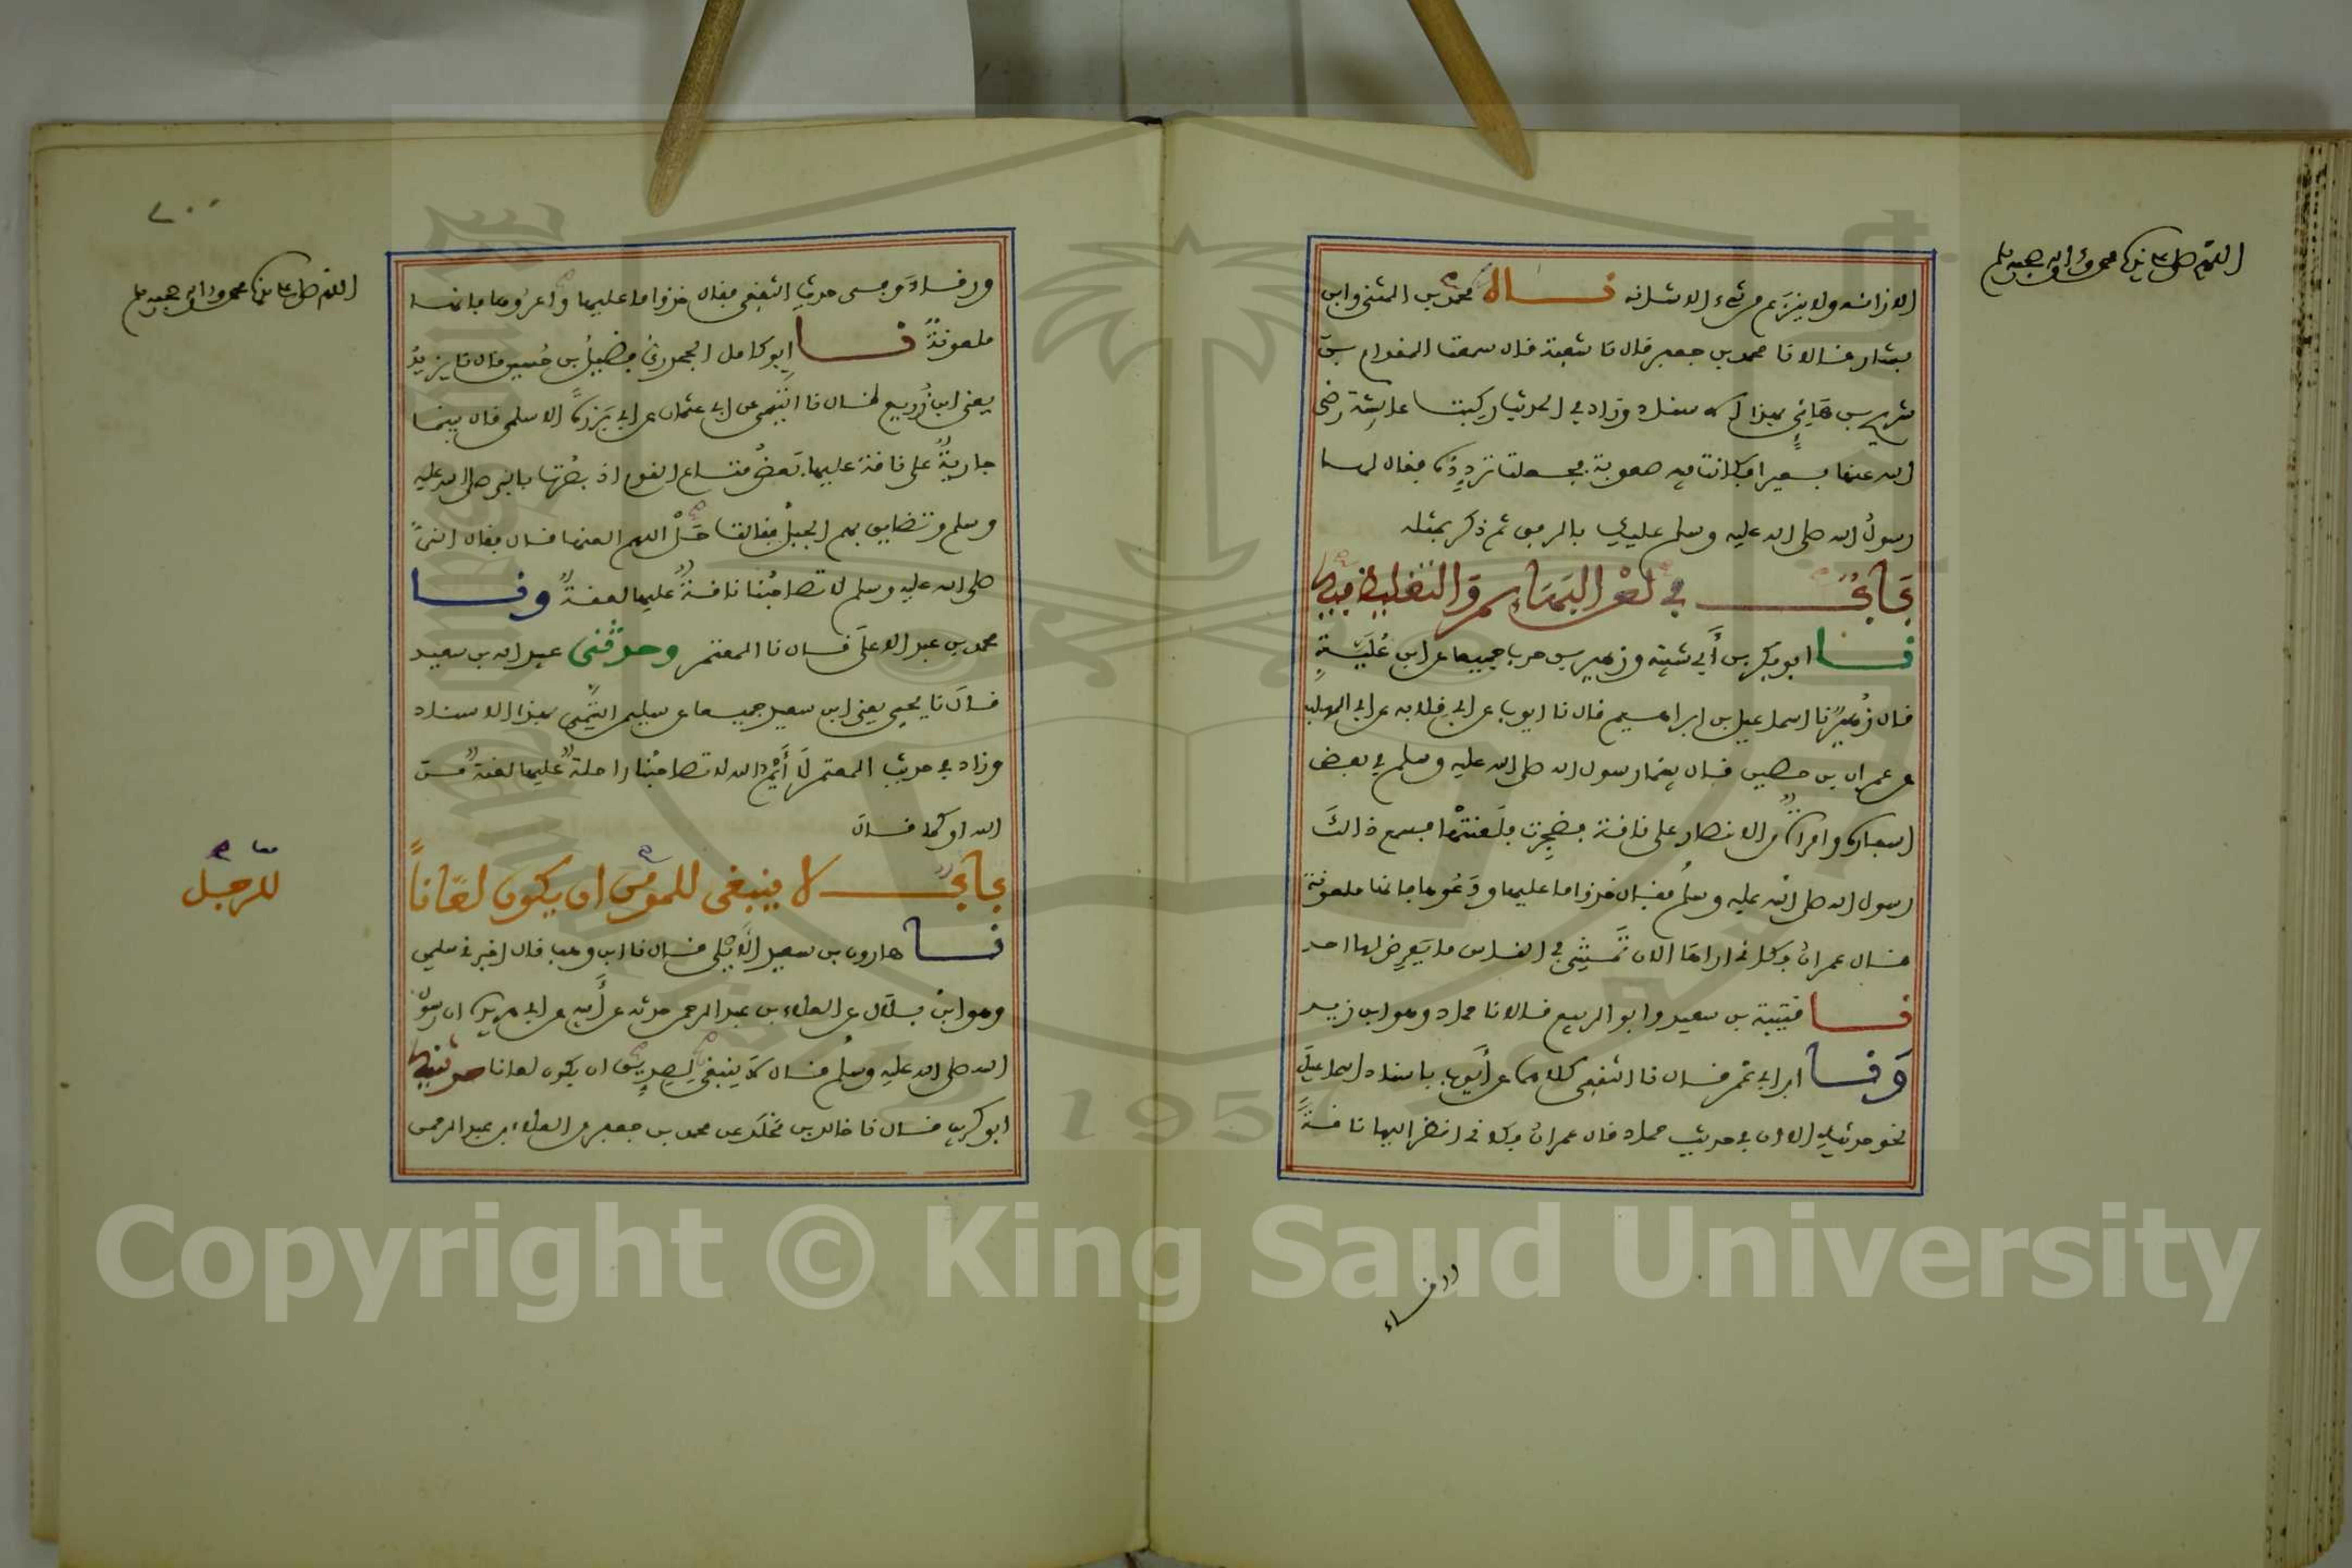 اللهم صل على سيدنا محمد وءاله وصحبه وسلم
الا زانه ولا ينزع من شيء الا شانه نــاه محمد بن المثنى وابن
بشار قالا نا محمد بن جعفر قال نا شعبة قال سمعت المقدام بن
شريح بن هانئ بهذا الاسناد وزاد في الحديث ركبت عائشة رضي
الله عنها بعيرا وكانت فيه صعوبة فجعلت تردده فقال لها
رسول الله صلى الله عليه وسلم عليك بالرفق ثم ذكر بمثله
باب في لعن البهائم والتغليظ فيه
نا ابو بكر بن أبي شيبة وزهير بن حرب جميعا عن ابن علية
قال زهير نا اسماعيل بن ابراهيم قال نا ايوب عن ابي قلابه عن ابي المهلب
عن عمران بن حصين قال بينما رسول الله صلى الله عليه وسلم في بعض
اسفاره وامراة من الانصار على ناقة فضجرت فلعنتها فسمع ذالك
رسول الله صلى الله عليه وسلم فقال خذوا ما عليها ودعوها فانها ملعونة
قال عمران فكاني اراها الان تمشي في الناس ما يعرض لها احد
نا قتيبة بن سعيد وابو الربيع قالا نا حماد وهو ابن زيد
ونا ابن ابي عمر قال نا الثقفي كلاهما عن أيوب باسناد اسماعيل
نحو حديثه الا ان في حديث حماد قال عمران فكاني انظر اليها ناقة
ورقاء
٧٠٠
اللهم صل على سيدنا محمد وءاله وصحبه وسلم
ورقاء وفي حديث الثقفي فقال خذوا ما عليها واعروها فانها
ملعونة نا ابو كامل الجحدري فضيل بن حسين قال نا يزيد
يعني ابن زريع قال نا التيمي عن ابي عثمان عن ابي برزة الاسلمي قال بينما
جارية على ناقة عليها بعض متاع القوم اذ بصرت بالنبي صلى الله عليه
وسلم وتضايق بهم الجبل فقالت حل اللهم العنها قال فقال النبي
صلى الله عليه وسلم لا تصاحبنا ناقة عليها لعنة ونا
محمد بن عبد الاعلى قال نا المعتمر وحدثني عبيد الله بن سعيد
قال نا يحيى يعني ابن سعيد جميعا عن سليمن التيمي بهذا الاسناد
وزاد في حديث المعتمر لا أيم الله لا تصاحبنا راحلة عليها لعنة من
الله او كما قال
باب لا ينبغي للمؤمن ان يكون لعانا
معا
للرجل
نا هارون بن سعيد الأيلي قال نا ابن وهب قال اخبرني سليمن
وهو ابن بلال عن العلاء بن عبد الرحمن حدثه عن أبيه عن ابي هريرة ان رسول
الله صلى الله عليه وسلم قال لا ينبغي لصديق ان يكون لعانا حدثنيه
ابو كريب قال نا خالد بن مخلد عن محمد بن جعفر عن العلاء بن عبد الرحمن
1957
Copyright © King Saud University